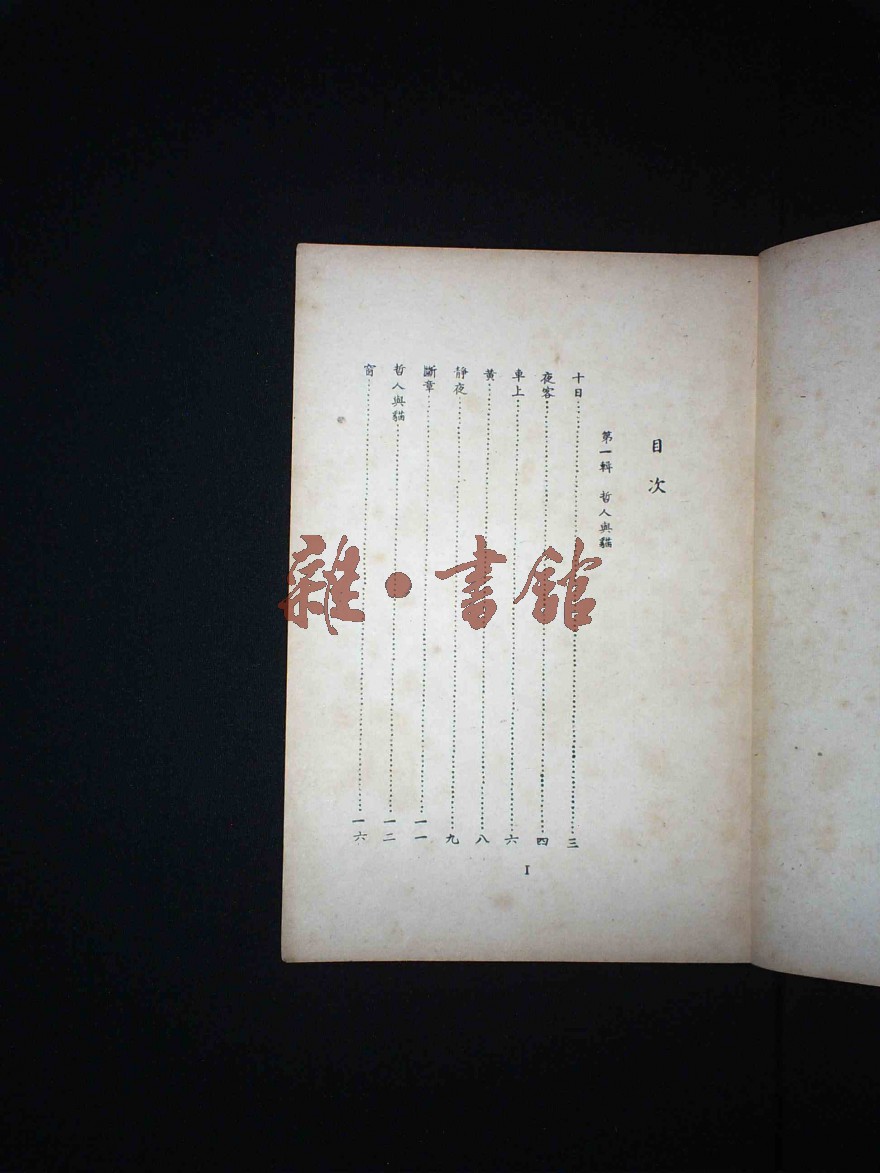 目次
第一輯 哲人與貓
十日…………三
夜客…………四
車上…………六
黃…………八
靜夜…………九
斷章…………一一
哲人與貓…………一二
窗…………一六
I
雜・書館